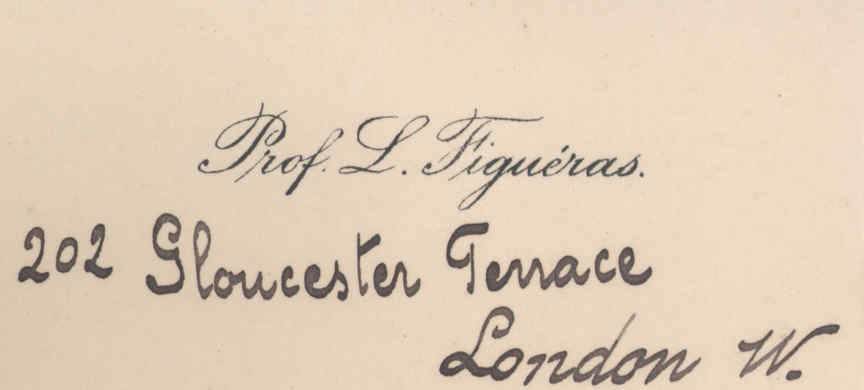 Prof. L. Figuéras.
202 Gloucester Terrace
London W.